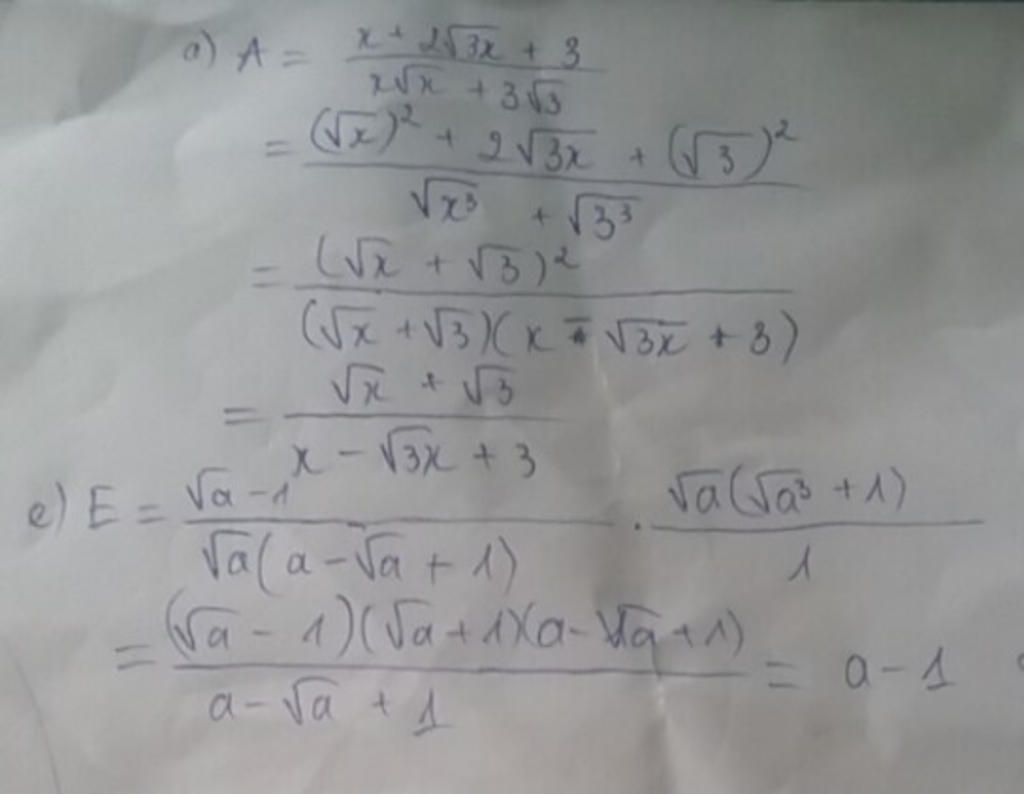 a) A = \frac{x + 2\sqrt{3x} + 3}{x\sqrt{x} + 3\sqrt{3}}
= \frac{(\sqrt{x})^2 + 2\sqrt{3x} + (\sqrt{3})^2}{\sqrt{x^3} + \sqrt{3^3}}
= \frac{(\sqrt{x} + \sqrt{3})^2}{(\sqrt{x} + \sqrt{3})(x - \sqrt{3x} + 3)}
= \frac{\sqrt{x} + \sqrt{3}}{x - \sqrt{3x} + 3}
e) E = \frac{\sqrt{a} - 1}{\sqrt{a}(a - \sqrt{a} + 1)} . \frac{\sqrt{a}(\sqrt{a^3} + 1)}{1}
= \frac{(\sqrt{a} - 1)(\sqrt{a} + 1)(a - \sqrt{a} + 1)}{a - \sqrt{a} + 1} = a - 1